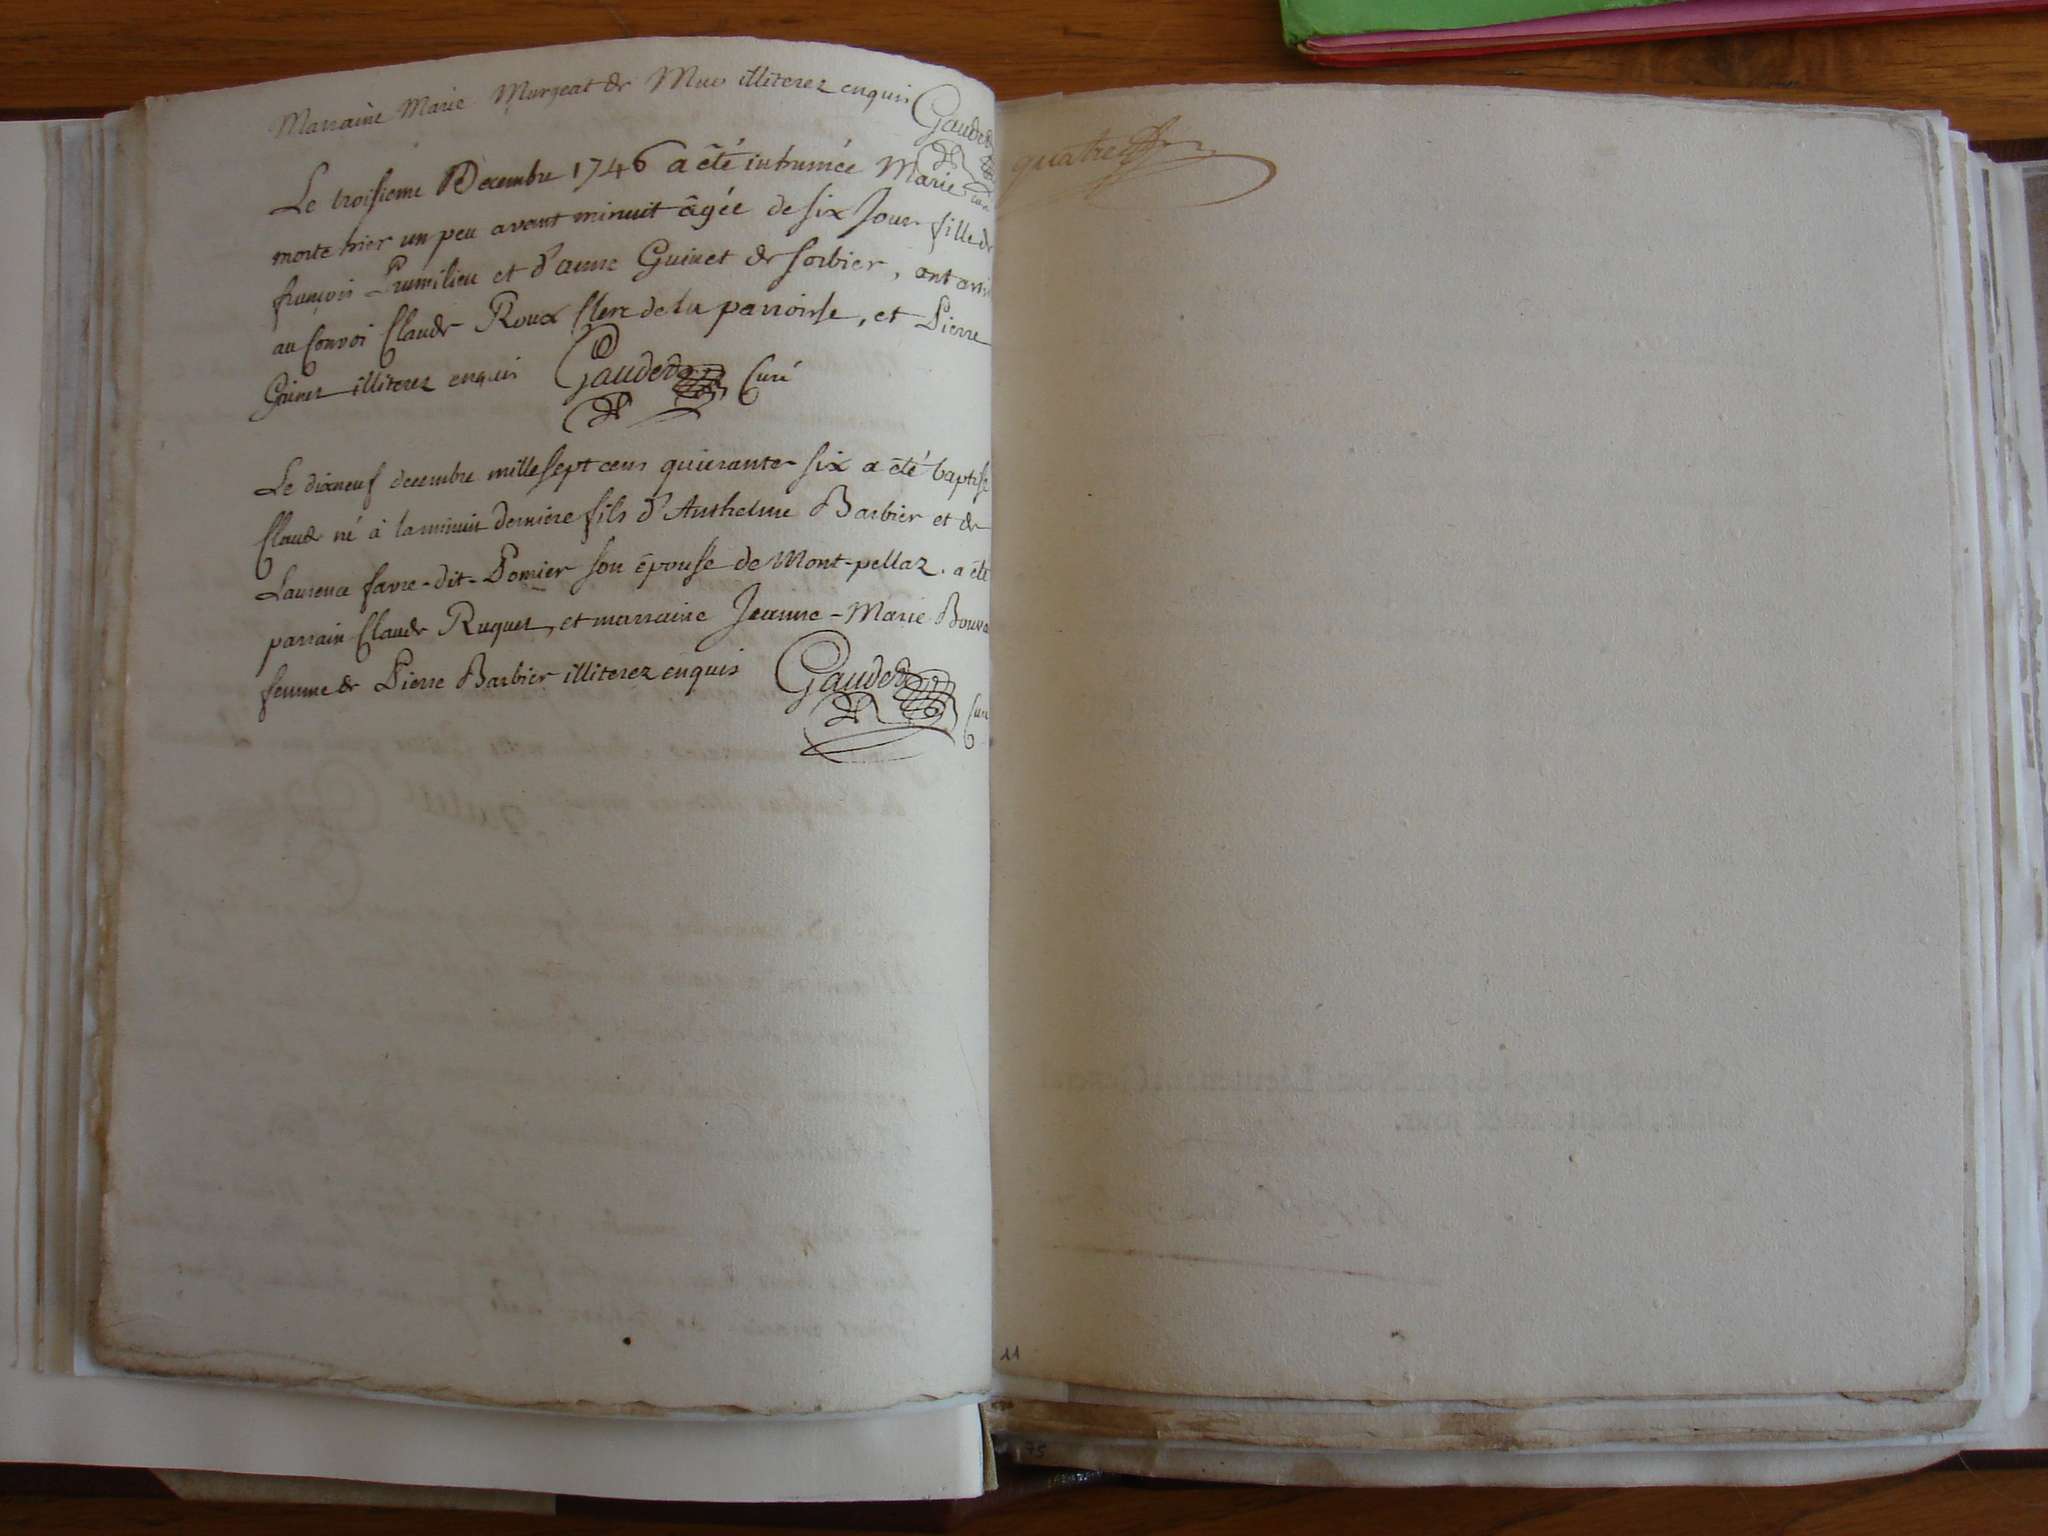 Marraine Marie Murgeat de Mus illiterez enquis Gaudet
Curé
Le troisieme Decembre 1746 a été inhumée Marie
morte hier un peu avant minuit âgée de six Jour fille de
françois Prumilieu et d'anne Guinet de sorbier, ont assi
au Convoi Claude Roux Clerc de la parroisse, et Pierre
Guinet illiterez enquis Gaudet Curé
Le dixneuf decembre mille sept cens quuranter six a été baptisé
Claude né à la minuit derniere fils d'Anthelme Barbier et de
Laurence favre-dit-Pomier son épouse de Mont-pellaz. a été
parrain Claude Ruquet, et marraine Jeanne-Marie Bouva
femme de Pierre Barbier illiterez enquis Gaudet
Curé
quatre
11
75